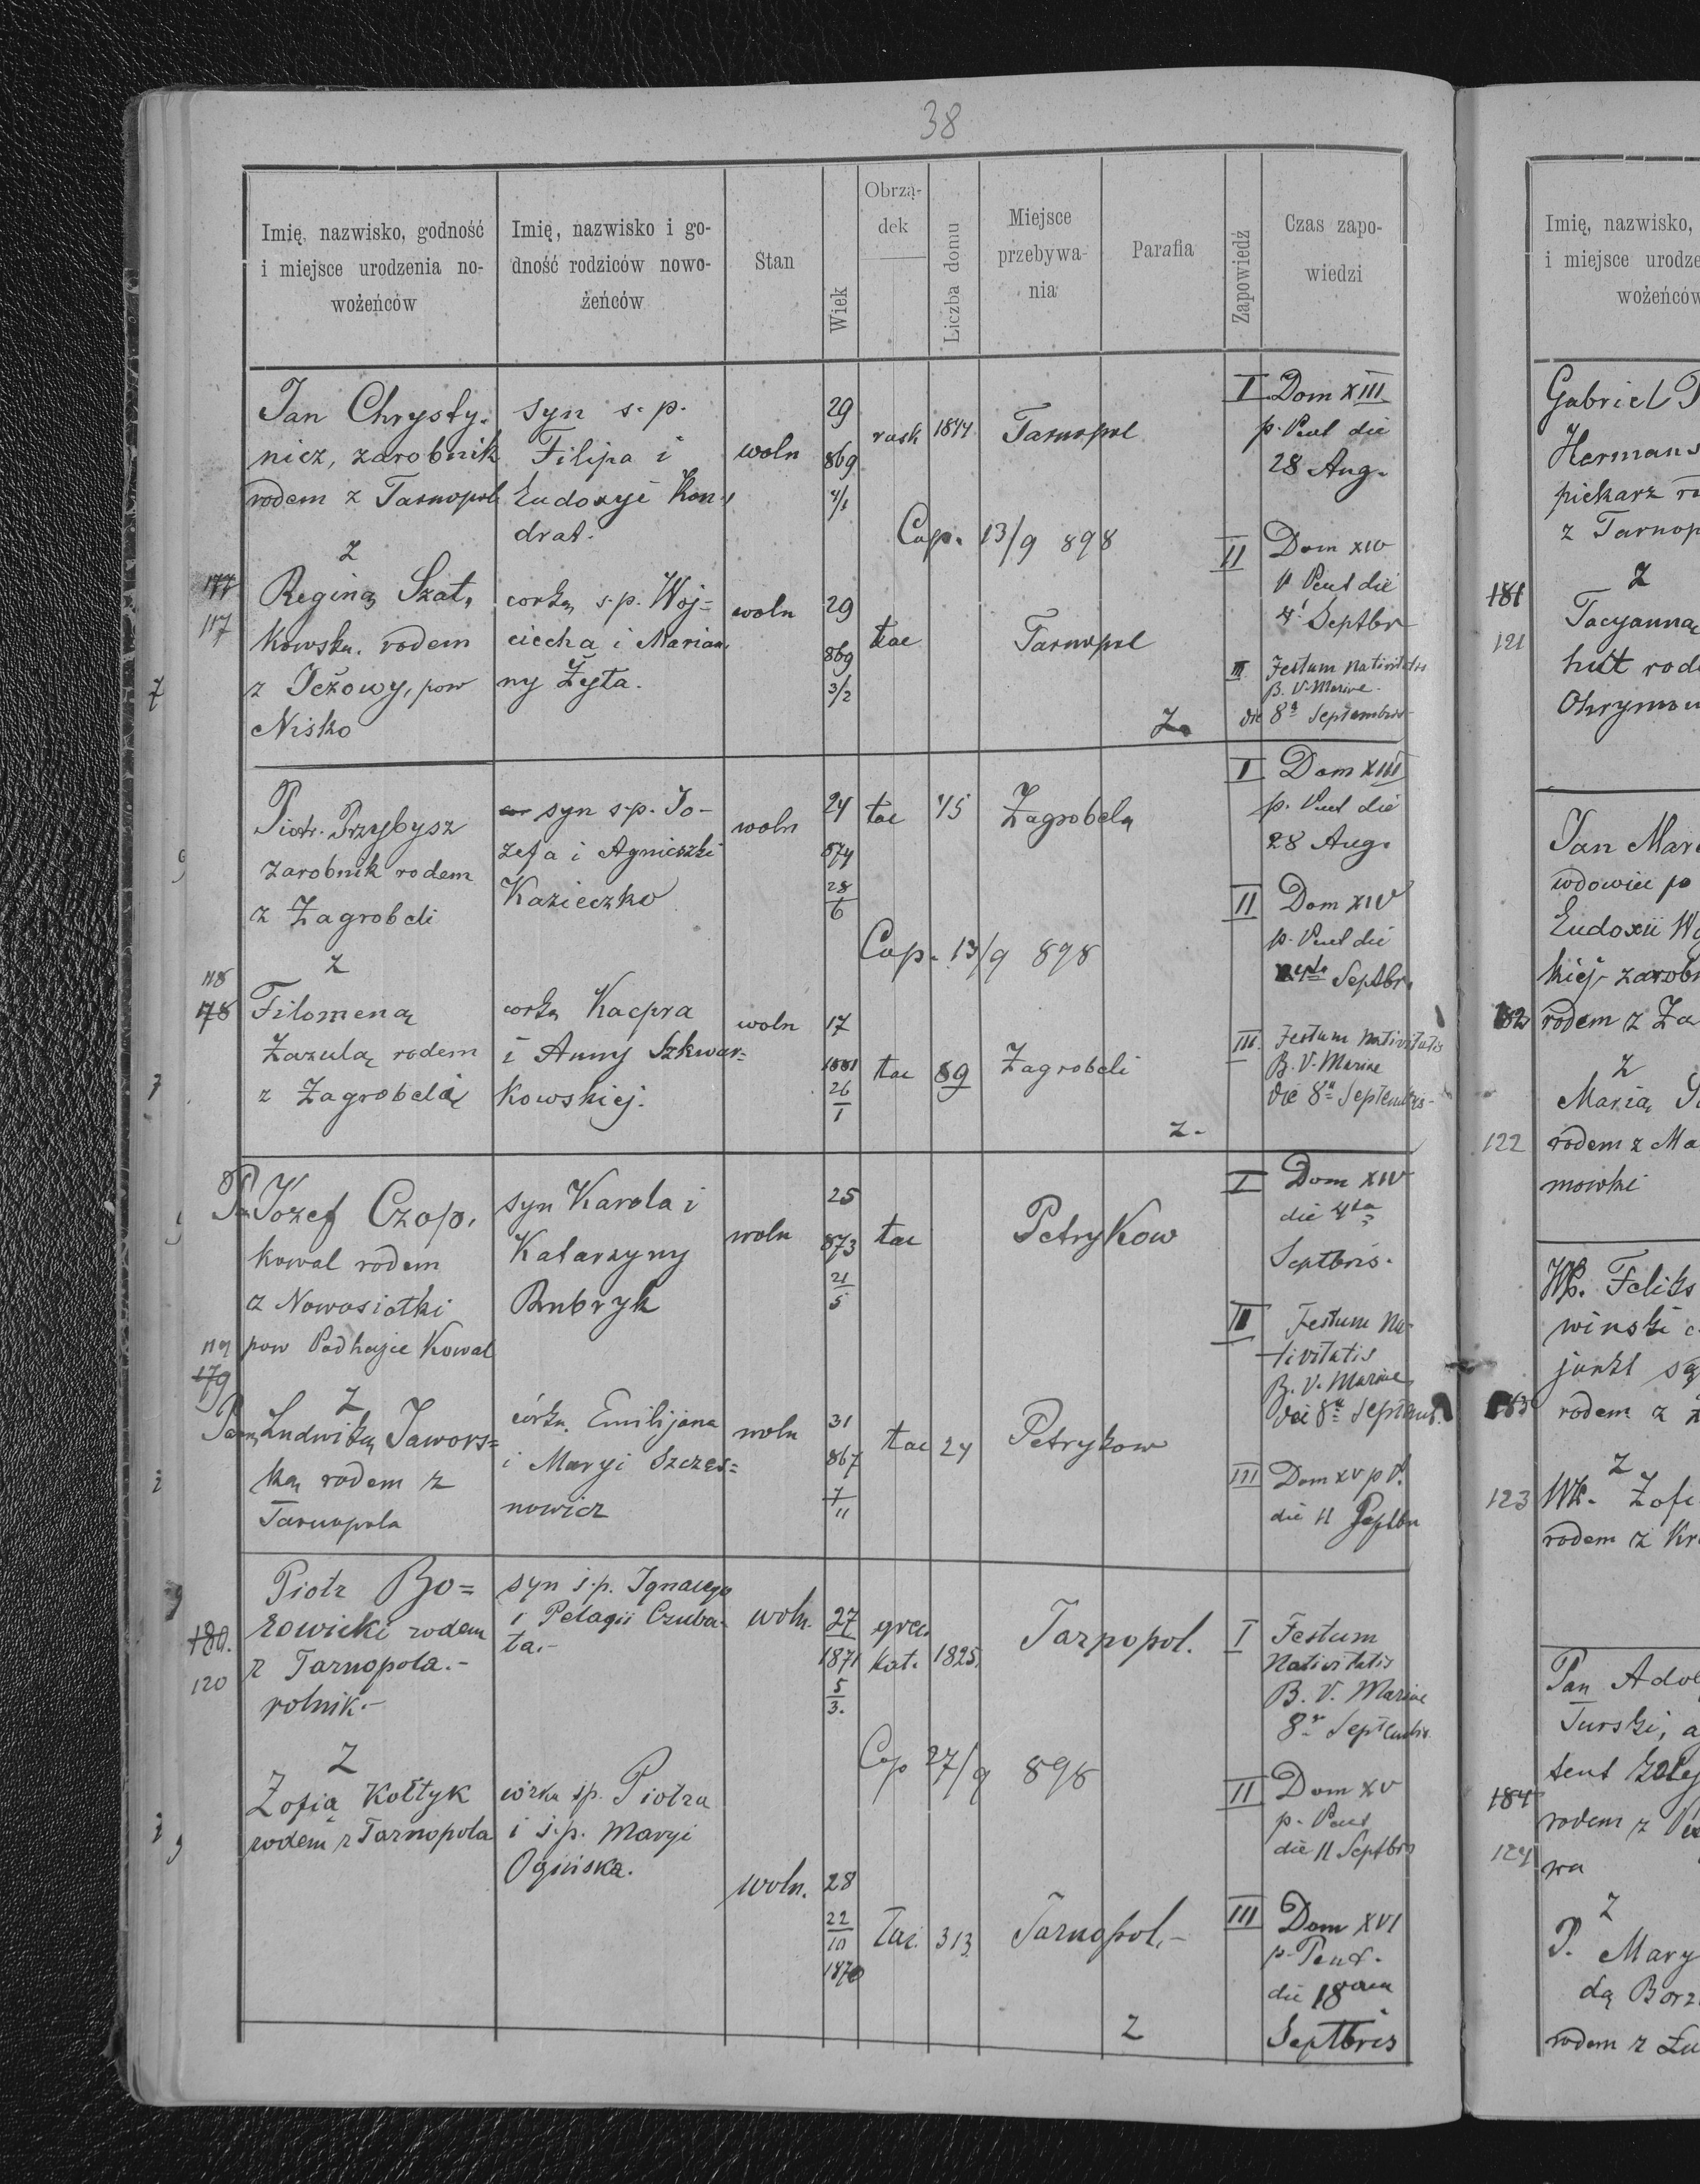 38
Imię, nazwisko, godność
i miejsce urodzenia no-
wożeńców
Imię, nazwisko i go-
dność rodziców nowo-
żeńców
Stan
Wiek
Obrzą-
dek
Liczba domu
Miejsce
przebywa-
nia
Parafia
Zapowiedź
Czas zapo-
wiedzi
177
117
Jan Chrysty-
nicz, zarobnik
rodem z Tarnopol
z
Reginą Szat,
kowska. rodem
z Jeżowy, pow
Nisko
syn s.p.
Filipa i
Eudoxyi Kon-
drat.
corką s.p. Woj=
ciecha i Marian,
ny Żyta.
woln
woln
29
869
4/1
29
869
3/2
rusk
1844
Tarnopol
Cop. 13/9 898
łac
Tarnopol
Z.
I Dom XIII
p. Pent die
28 Aug.
II Dom XIV
p Pent die
4 Septbr
III Festum Nativitatis
B. V. Mariae
die 8a Septembris
118
178
Piotr Przybysz
zarobnik rodem
z Zagrobeli
z
Filomeną
Zazulą rodem
z Zagrobeli
syn s.p. Jo-
zefa i Agnieszki
Kazieczko
corką Kacpra
i Anny Szkwar=
kowskiej.
woln
woln
24
874
28
6
17
1881
26
1
łac
45
Zagrobela
Cop. 13/9 898
łac
89
Zagrobeli
z.
I Dom XIII
p. Pent die
28 Aug.
II Dom XIV
p. Pent die
4ta Septbr.
III. Festum Nativitatis
B. V. Mariae
die 8a Septembris
119
179
Pan Józef Czop,
kowal rodem
z Nowosiołki
pow Podhajce Kowal
z
Panną Ludwiką Jawors=
ką rodem z
Tarnopola
syn Karola i
Katarzyny
Bubryk
córką Emilijana
i Maryi Szczęs=
nowicz
woln
woln
25
873
21
5
31
867
7
11
łac
Petrykow
łac
24
Petrykow
I Dom XIV
die 4ta
Septbris.
II Festum Na-
tivitatis
B. V. Mariae
die 8a Septemb.
III Dom XV p P.
die 11 Septbr
180.
120
Piotr Bo=
rowicki rodem
z Tarnopola.-
rolnik.-
z
Zofią Kołtyk
rodem z Tarnopola
syn ś.p. Ignacego
i Pelagii Czuba-
ta.-
córka śp. Piotra
i ś.p. Maryi
Ogińska.
woln.
woln.
27
1871
5
3.
28
22
10
1870
grec.
kat.
1825.
Tarnopol.
Cop 27/9 898
łac.
313
Tarnopol.-
z
I Festum
Nativitatis
B. V. Mariae
8a Septembris
II Dom XV
p. Pent
die 11 Septbris
III Dom XVI
p. Pent.
die 18
Septbris
Imię, nazwisko,
i miejsce urodze
wożeńców
181
121
Gabriel
Hermans
piekarz ro
z Tarnop
z
Tacyanną
hut rod
182
122
Jan Mar
wdowiec po
Eudoxii Wo
kiej zarobn
rodem z Za
z
Marią
rodem z Ma
mowki
183
123
Wp. Feliks
winski
junkt są
rodem z
z
Wp. Zofi
rodem z Kr
184
124
Pan Adol
Turski, a
tent kolej
rodem z
wa
z
P. Mary
dą Borz
rodem z Łu